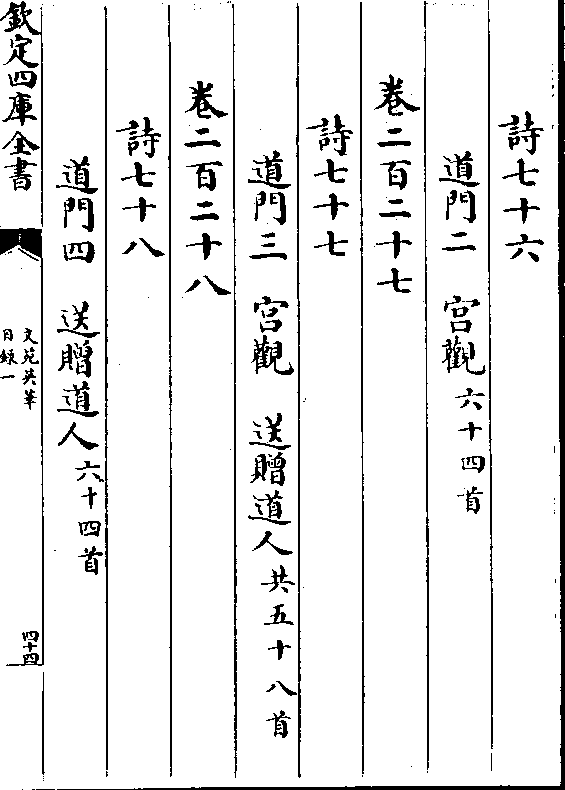 詩七十六
道門二 宫觀六十四首
卷二百二十七
詩七十七
道門三 宫觀 送贈道人共五十八首
卷二百二十八
詩七十八
道門四 送贈道人六十四首
欽定四庫全書
文苑英華
目録一
四十四